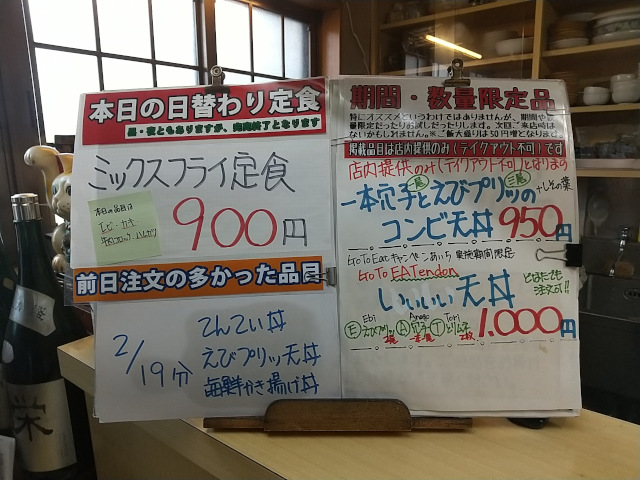 本日の日替わり定食
昼・夜ともありますが、完売終了となります
ミックスフライ定食
本日の品目は
エビ・カキ
牛肉コロッケ・ハムカツ
900円
前日注文の多かった品目
2/19分
てんてい丼
えびプリッ天丼
海鮮かき揚げ丼
期間・数量限定品
特にオススメというわけではありませんが、期間や
量限定だったりお試しだったりします。次回ご来店時は
ないかもしれません。※ご飯大盛りは50円増となります。
掲載品目は店内提供のみ(テイクアウト不可)です
店内提供のみ(テイクアウト不可)となります
一本穴子とえびプリッの
一尾 三尾 +しその葉
コンビ天丼 950円
GoToEatキャンペーンあいち 実施期間限定
GoTo EATendon
いいいい天丼
どなたでも
注文可!!
Ebi Anago Tori
Eえびプリッ Aア穴子 Tとりムネ
1.000円
栄